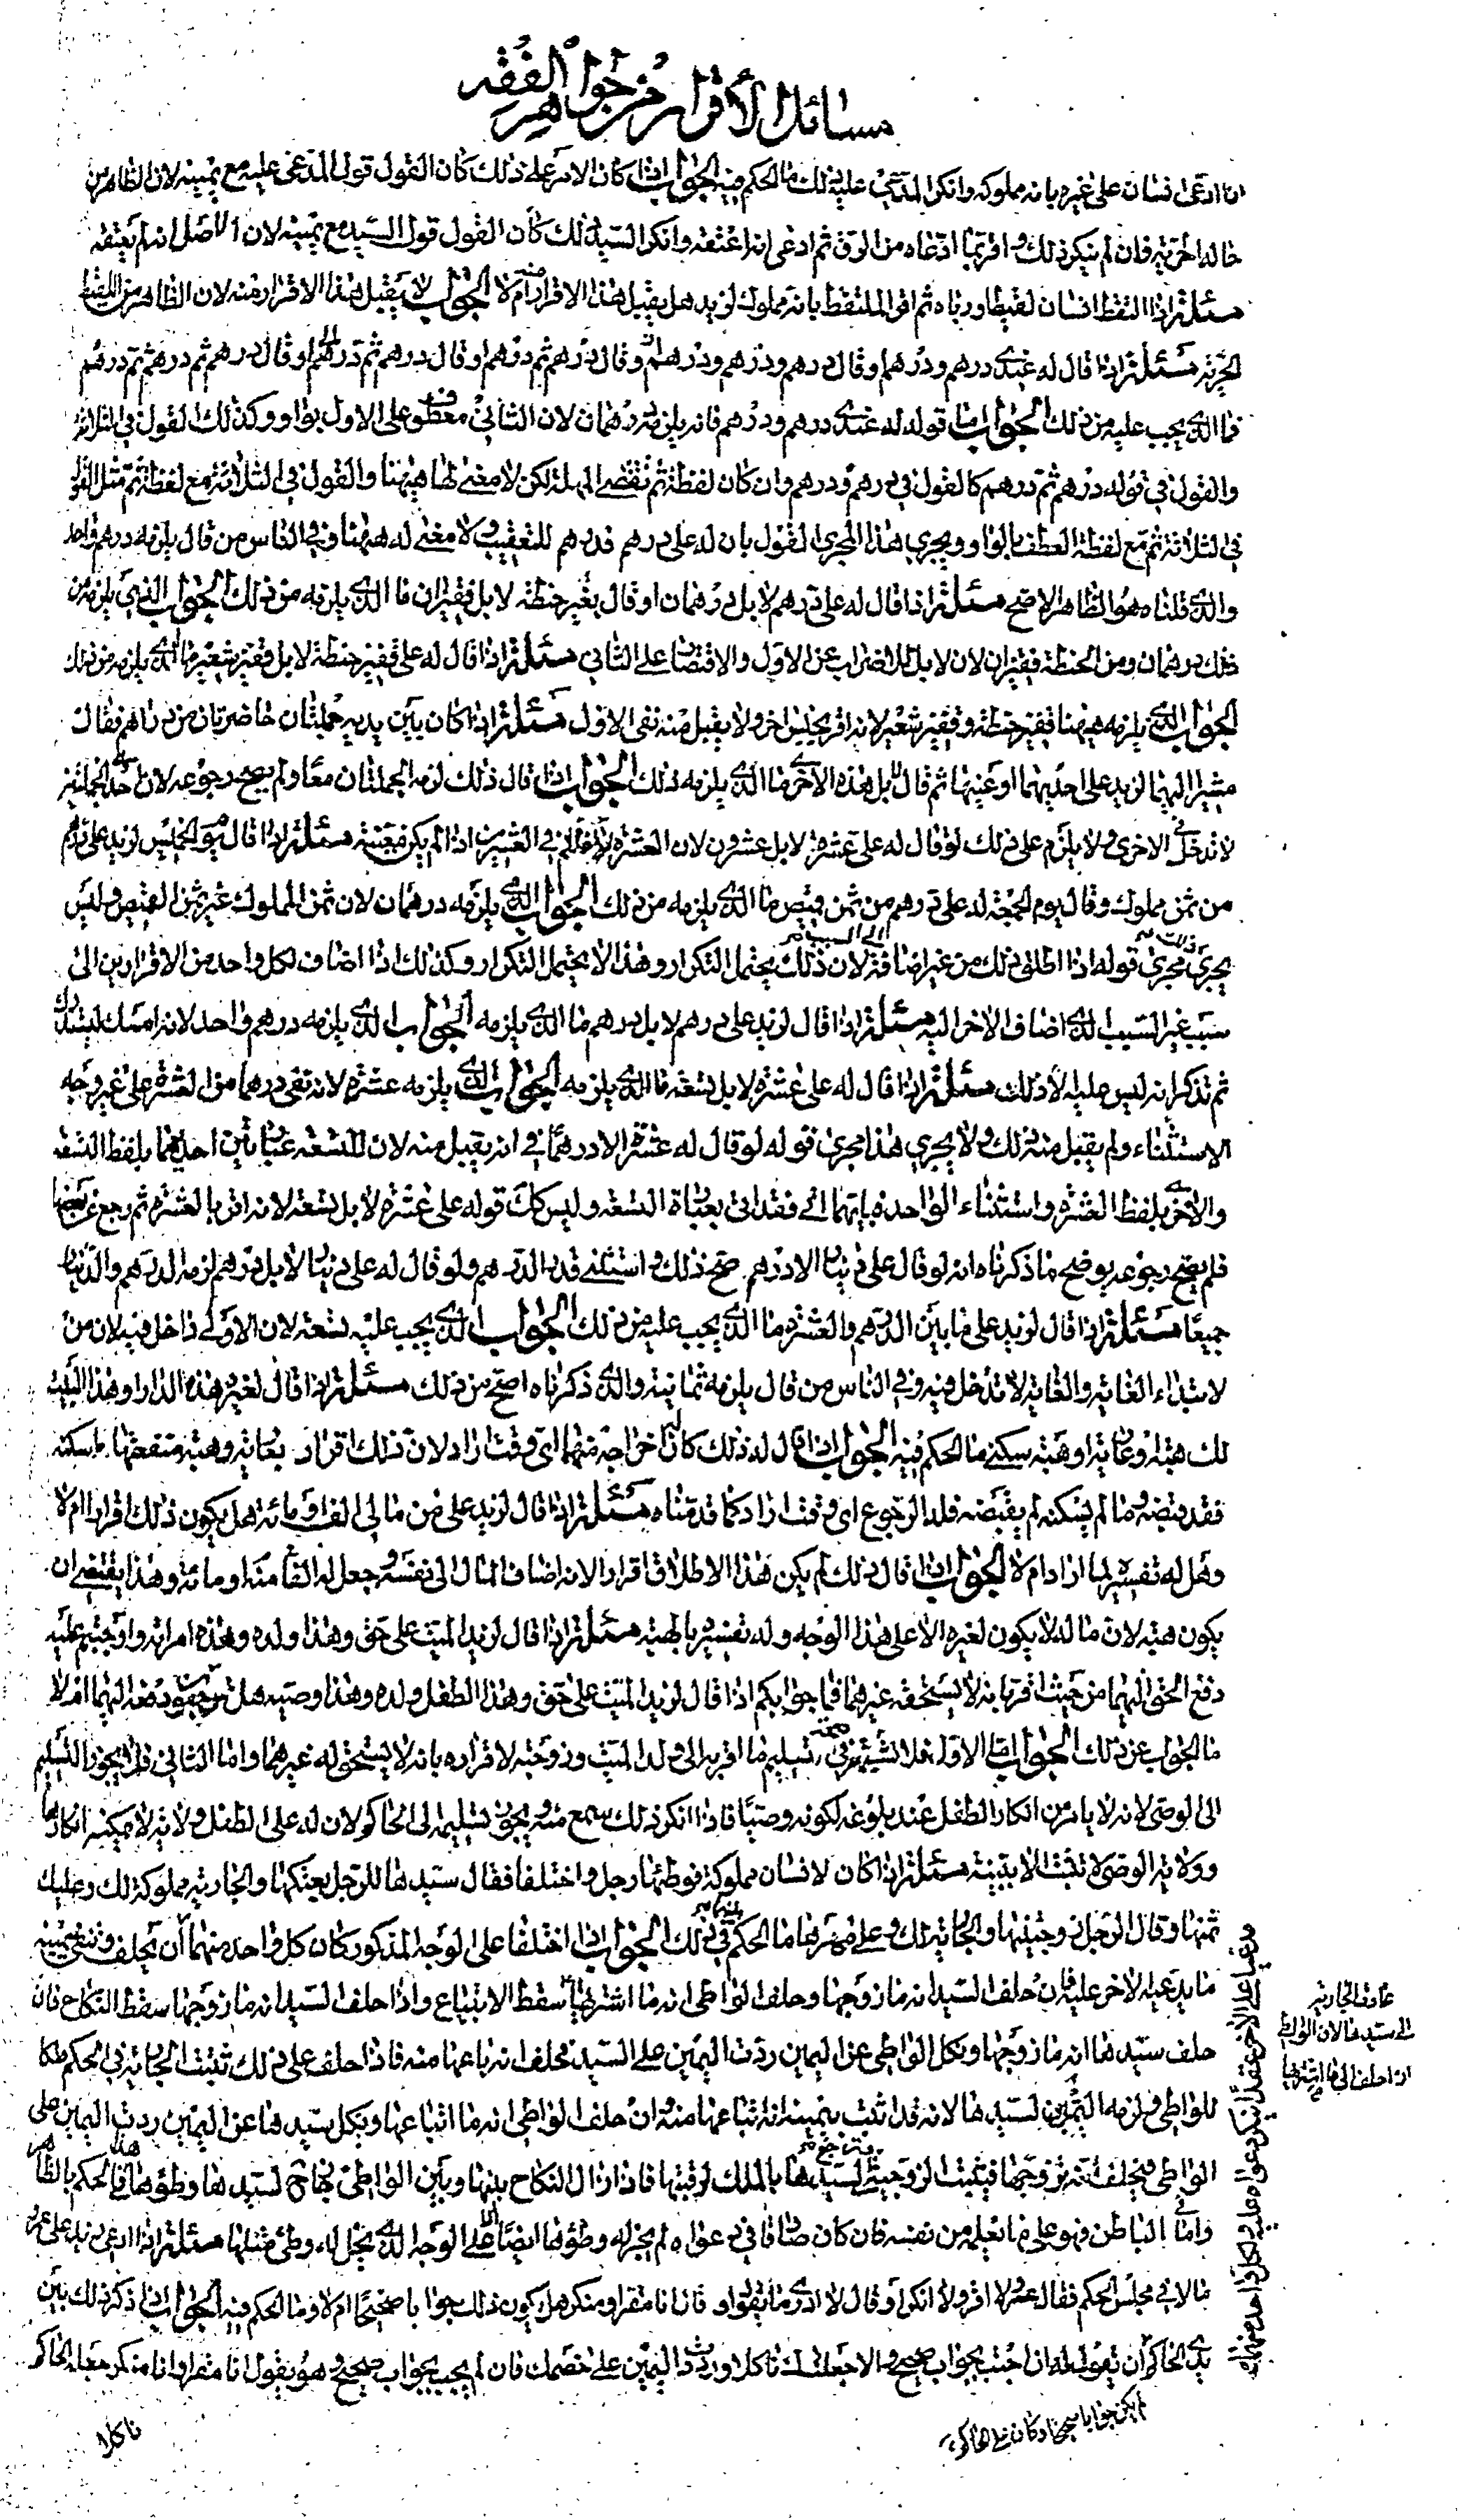 مسائل الاقرار من جواهر الفقه
اذا ادعى انسان على غيره بانه مملوكه وانكر المدعى عليه ذلك ما الحكم فيه الجواب اذا كان الامر على ذلك كان القول قول المدعى عليه مع يمينه لان الظاهر من
حاله الحرية فان لم ينكر ذلك واقر بما ادعاه من الرق ثم ادعى انه اعتقه وانكر السيد ذلك كان القول قول السيد مع يمينه لان الاصل انه لم يعتقه
مسئلة اذا التقط انسان لقيطا ورباه ثم اقر الملتقط بانه مملوك لزيد هل يقبل هذا الاقرار منه ام لا الجواب لا يقبل هذا الاقرار منه لان الظاهر من اللقيط
الحرية مسئلة اذا قال له عندى درهم ودرهم او قال درهم ودرهم ودرهم او قال درهم ثم درهم او قال درهم ثم درهم او قال درهم ثم درهم ثم درهم
فما الذى يجب عليه من ذلك الجواب اما قوله له عندى درهم ودرهم فانه يلزمه درهمان لان الثانى معطوف على الاول بواو وكذلك القول فى الثلاثة
والقول فى قوله درهم ثم درهم كالقول فى درهم ودرهم وان كان لفظة ثم تقتضى المهلة لكن لا معنى لها هيهنا والقول فى الثلاثة مع لفظة ثم مثل القول
فى الثلاثة مع لفظة العطف بالواو ويجرى هذا المجرى القول بان له على درهم فدرهم للتعقيب ولا معنى له هيهنا وفى الناس من قال يلزمه درهم واحد
والذى قلناه هو الظاهر الاصح مسئلة اذا قال له على درهم لا بل درهمان او قال قفيز حنطة لا بل قفيزان ما الذى يلزمه من ذلك الجواب الذى يلزمه من
ذلك درهمان ومن الحنطة قفيزان لان لا بل للاضراب عن الاول والاقتصار على الثانى مسئلة اذا قال له على قفيز حنطة لا بل قفيز شعير ما الذى يلزمه من ذلك
الجواب الذى يلزمه هيهنا قفيز حنطة وقفيز شعير لانه اقر بجنس اخر ولا يقبل منه نفى الاول مسئلة اذا كان بين يديه جملتان حاضرتان من دراهم فقال
مشيرا اليهما لزيد على احديهما او عينها ثم قال لا بل هذه الاخرى ما الذى يلزمه ذلك الجواب اذا قال ذلك لزمه الجملتان معا ولم يصح رجوعه لان احدى الجملتين
لا تدخل فى الاخرى ولا يلزم على ذلك لو قال له على عشرة لا بل عشرون لان العشرة داخلة فى العشرين اذا لم يكن معينة مسئلة اذا قال يوم الخميس لزيد على درهم
من ثمن مملوك وقال يوم الجمعة له على درهم من ثمن قميص ما الذى يلزمه من ذلك الجواب الذى يلزمه درهمان لان ثمن المملوك غير ثمن القميص وليس
يجرى ذلك مجرى قوله اذا اطلق ذلك من غير اضافة الى السبب لان ذلك يحتمل التكرار وهذا لا يحتمل التكرار وكذلك اذا اضاف لكل واحد من الاقرارين الى
سبب غير السبب الذى اضاف الاخر اليه مسئلة اذا قال لزيد على درهم لا بل درهم ما الذى يلزمه الجواب الذى يلزمه درهم واحد لانه امسك ليستدرك
ثم تذكر انه ليس عليه الا ذلك مسئلة اذا قال له على عشرة لا بل تسعة ما الذى يلزمه الجواب الذى يلزمه عشرة لانه نفى درهما من العشرة على غير وجه
الاستثناء ولم يقبل منه ذلك ولا يجرى هذا مجرى قوله لو قال له عشرة الا درهما فى انه يقبل منه لان للتسعة عبارتين احديهما بلفظ التسعة
والاخرى بلفظ العشرة واستثناء الواحد فبايهما اتى فقد اتى بعبارة التسعة وليس كك قوله على عشرة لا بل تسعة لانه اقر بالعشرة ثم رجع عن بعضها
فلم يصح رجوعه يوضح ما ذكرناه انه لو قال على دينار الا درهم صح ذلك واستثنى قدر الدرهم ولو قال له على دينار لا بل درهم لزمه الدرهم والدينار
جميعا مسئلة اذا قال لزيد على ما بين الدرهم والعشرة ما الذى يجب عليه من ذلك الجواب الذى يجب عليه تسعة لان الاول داخل فيه لان من
لابتداء الغاية والغاية لا تدخل فيه وفى الناس من قال يلزمه ثمانية والذى ذكرناه اصح من ذلك مسئلة اذا قال لغيره هذه الدار او هذا البيت
لك هبة او عارية او هبة سكنى ما الحكم فيه الجواب اذا قال له ذلك كان له اخراجه منهما اى وقت اراد لان ذلك اقرار بعارية وهبة منفعتها ما سكنه
فقد قبضه وما لم يسكنه لم يقبضه فله الرجوع اى وقت اراد كما قدمناه مسئلة اذا قال لزيد على من مالى الف او مائة هل يكون ذلك اقرارا ام لا
وهل له تفسيره لما اراد ام لا الجواب اذا قال ذلك لم يكن هذا الاطلاق اقرارا لانه اضاف المال الى نفسه وجعل له الفا منه او مائة وهذا يقتضى ان
يكون هبة لان ماله لا يكون لغيره الا على هذا الوجه وله تفسيره بالهبة مسئلة اذا قال لزيد الميت على حق وهذا ولده وهذه امراته واوجبتم عليه
دفع الحق اليهما من حيث اقر بانه لا يستحقه غيرهما فما جوابكم اذا قال لزيد الميت على حق وهذا الطفل ولده وهذا وصيه هل توجبون دفعه اليهما ام لا
ما الجواب عن ذلك الجواب اما الاول فلا شبهة فى تسليم ما اقر به الى ولد الميت وزوجته لاقراره بانه لا يستحق له غيرهما واما الثانى فلا يجوز التسليم
الى الوصى لانه لا يامن من انكار الطفل عند بلوغه لكونه وصيا فاذا انكر ذلك سمع منه ويجوز تسليمه الى الحاكم لان له على الطفل ولاية لا يمكنه انكارها
وولاية الوصى لا تثبت الا ببينة مسئلة اذا كان لانسان مملوكة فوطئها رجل واختلفا فقال سيدها للرجل بعتكها والجارية مملوكة لك وعليك
ثمنها وقال الرجل زوجتنيها والجارية لك وعلى مهرها ما الحكم فى ذلك الجواب اذا اختلفا على الوجه المذكور كان كل واحد منهما ان يحلف وتنفى يمينه
ما يدعيه الاخر عليه فان حلف السيد انه ما زوجها وحلف الواطى انه ما اشتريها سقط الابتياع واذا حلف السيد انه ما زوجها سقط النكاح فان
حلف سيدها انه ما زوجها ونكل الواطى عن اليمين ردت اليمين على السيد فحلف انه باعها منه فاذا حلف على ذلك تثبت الجارية فى الحكم ملكا
للواطى ولزمه الثمن لسيدها لانه قد ثبت بيمينه انه ابتاعها منه وان حلف الواطى انه ما ابتاعها ونكل سيدها عن اليمين ردت اليمين على
الواطى فيحلف انه تزوجها فيثبت الزوجية وترجع لسيدها بالملك لرقبتها فاذا زال النكاح بينها وبين الواطى بنكاح لسيدها وطؤها هذا فى الحكم بالظاهر
واما فى الباطن فهو على ما يعلمه من نفسه فان كان صادقا فى دعواه لم يجز له وطؤها ايضا الا على الوجه الذى يحل له وطئ مثلها مسئلة اذا ادعى زيد على عمرو
مالا فى مجلس الحكم فقال عمرو لا اقر ولا انكر او قال لا ادرى ما يقول او قال انا مقر او منكر هل يكون ذلك جوابا صحيحا ام لا وما الحكم فيه الجواب اذا ذكر ذلك بين
يدى الحاكم ان يقول له ان اجبت بجواب صحيح والا جعلتك ناكلا ورددت اليمين على خصمك فان لم يجب بجواب صحيح وهو يقول انا مقر او انا منكر جعله الحاكم
ناكلا
لم يكن جوابا صحيحا وكان على الحاكم
عادت الجارية
الى سيدها لان الواطى
اذا حلف انى ما اشتريها